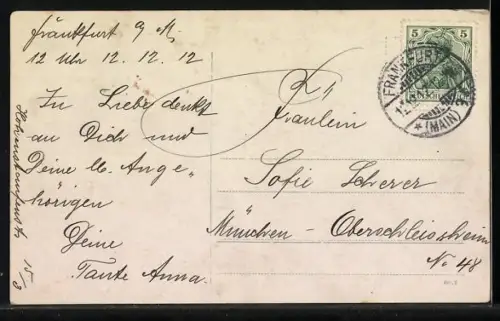 Frankfurt 9 M.
12 Uhr 12. 12. 12
In Liebe denkt
an Dich und
Deine lb. Ange-
hörigen
Deine
Tante Anna.
15/3
Fräulein
Sofie Scherer
München - Oberschleissheim
No 48
5 5
FRANKFURT
* (MAIN)